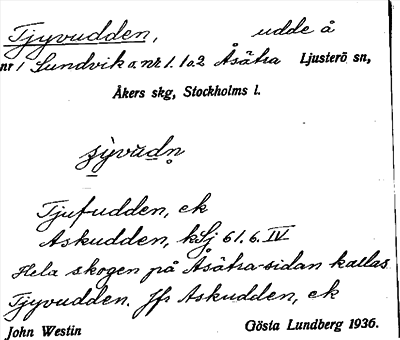 Tjyvudden, udde å
nr 1 Sundvik o. nr 1. 1 o. 2 Åsätra Ljusterö sn,
Åkers skg, Stockholms l.
Tjufudden, ek
Askudden, kSj 61.6.IV
Hela skogen på Åsätra-sidan kallas
Tjyvudden. Jfr Askudden, ek
John Westin Gösta Lundberg 1936.